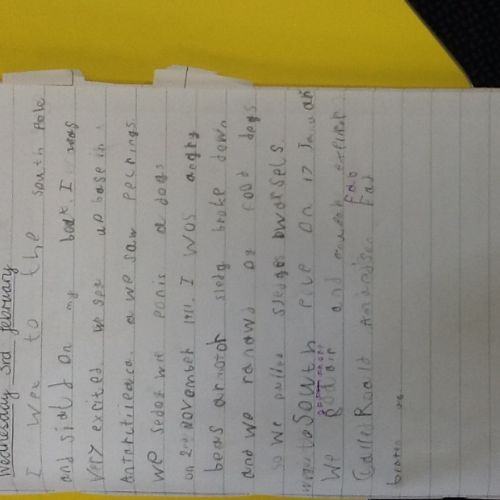 Wednesday 3rd February
I wet to the south Pole
and siald on my boat. I was
very excited. we set up base in
Antartitieaica. a we saw pecnings
We sedof wit ponis a dogs
on 2nd NOVEMBER 1911. I was angry
becas armotor sledg broke down
and we ranawd of food dogs
so we pulled sledges bwarsels.
South Pole on 17 Januar
We got and
Called Roald Amandsen had
beaten us